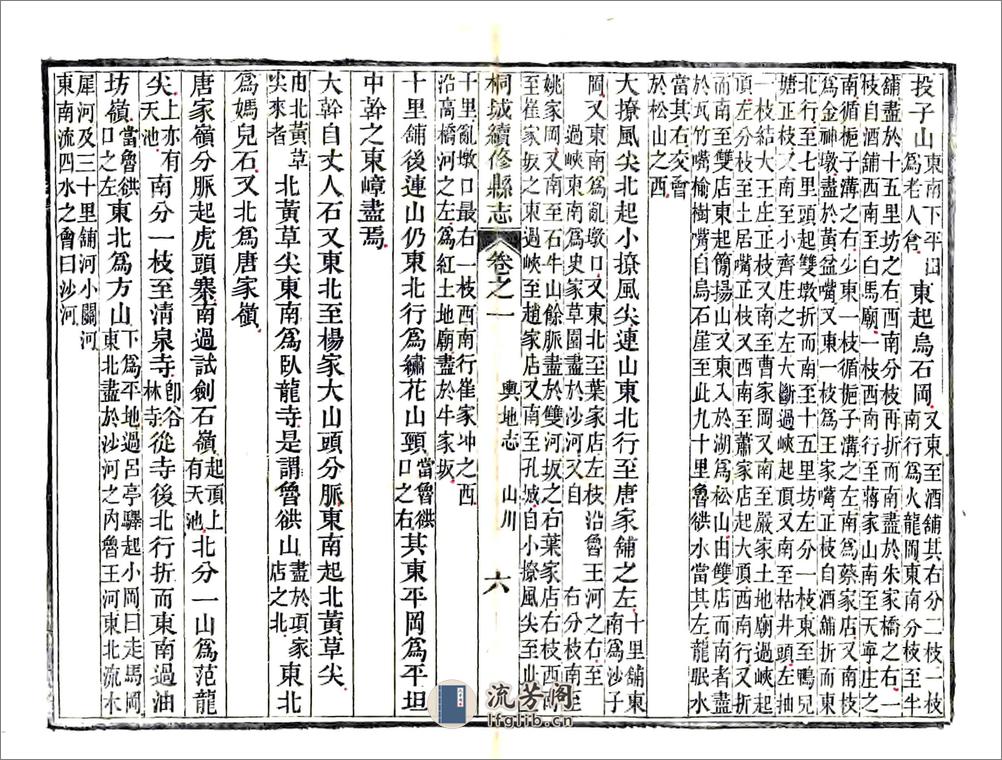 投子山東南下平田為老人倉東起烏石岡又東至酒舖其右分二枝一枝南行為火龍岡東南分枝至牛
舖盡於十五里坊之右西南一枝再折而南盡於朱家橋之右一
枝自酒舖西南至白馬廟一枝西南行至蔣家山南至天寧庄之
南循梔子溝之右少東一枝循梔子溝之左南為蔡家店又南枝
為金神墩盡於黃盆嘴又東一枝為王家嘴正枝自酒舖折而
北行至七里頭起雙墩折而南至十五里坊左分一枝東至鴨兒
塘正枝又南至小齊庄之左大斷過峽起頂又南至枯井頭左抽
一枝結大王庄正枝又南至曹家岡又南至嚴家土地廟過峽起
頂左分枝土居嘴正枝又南至蕭家店起大頂西南行又折
而南至雙枝店東起簡揚山又東入於湖為松山由雙店而南者盡
於瓦竹嘴榆樹嘴自烏石崖至此九十里魯谼水當其左龍眠水
當其右交會
於松山之西
大撩風尖北起小撩風尖連山東北行至唐家舖之左十里舖東南為沙子
岡又東南為亂墩口又東北至葉家店左枝沿魯王河之右至
過峽東南為史家草園盡於沙河又自右分枝南至
姚家岡又南至石牛山餘脈盡於雙河坂之右葉家店右枝西
至崔家坂之東過峽至趙家店又南至孔城自小撩風尖至此
桐城續修縣志 卷之一 輿地志 山川 六
十里亂墩口最右一枝西南行崔家冲之西
沿高橋河之左為紅土地廟盡於牛家坂
十里舖後連山仍東北行為繡花山頸當魯谼口之右其東平岡為平坦
中幹之東嶂盡焉
大幹自丈人石又東北至楊家大山頭分脈東南起北黃草尖
由北黃草尖來者北黃草尖東南為臥龍寺是謂魯谼山盡於項家店之北東北
為媽兒石又北為唐家嶺
唐家嶺分脈起虎頭寨南過試劍石嶺起頂上有天池北分一山為范龍
尖上亦有天池南分一枝至清泉寺卽谷林寺從寺後北行折而東南過油
坊嶺當魯谼口之左東北為方山下為平地過呂亭驛起小岡曰走馬岡東北盡於沙河之內魯王河東北流水
犀河及三十里舖河小關河
東南流四水之會曰沙河
流芳阁
lfglib.cn